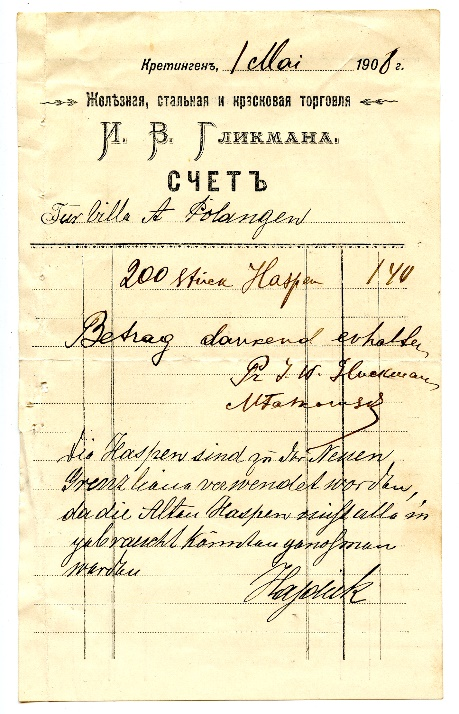 Кретингенъ, 1 Mai 1908 г.
Желѣзная, стальная и красковая торговля
И. В. Гликмана.
СЧЕТЪ
Für Villa A Polangen
200 stück Haspen 1 40
Betrag dankend erhalten
Pr I. W. Glückmann
die Haspen sind zu der Neuen
Grenzliene verwendet worden,
da die Alten Haspen nicht alle in
gebraucht könnten genohman
warden
Hajduk